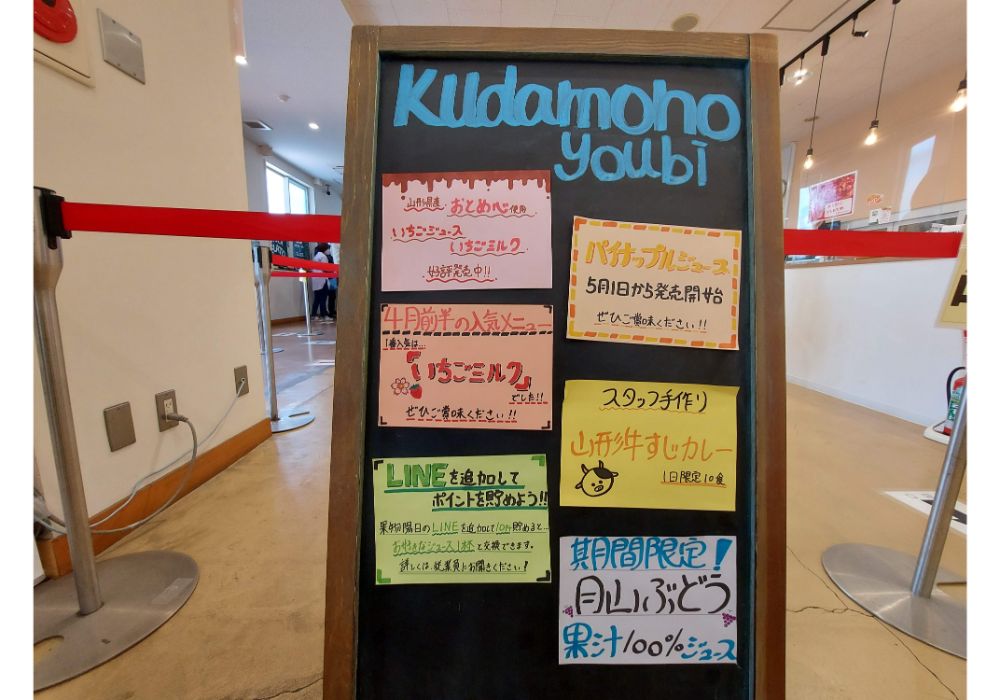 Kudamono
youbi
山形県産 おとめ心 使用
いちごジュース
いちごミルク
好評発売中!!
4月前半の人気メニュー
1番人気は…
「いちごミルク」
でした!!
ぜひご賞味ください!!
LINEを追加して
ポイントを貯めよう!!
果物陽日のLINEを追加して10Pt貯めると…
お好きなジュース1杯と交換できます。
詳しくは、従業員にお聞きください!
パイナップルジュース
5月1日から発売開始
ぜひご賞味ください!!
スタッフ手作り
山形牛すじカレー
1日限定10食
期間限定!
月山ぶどう
果汁100%ジュース